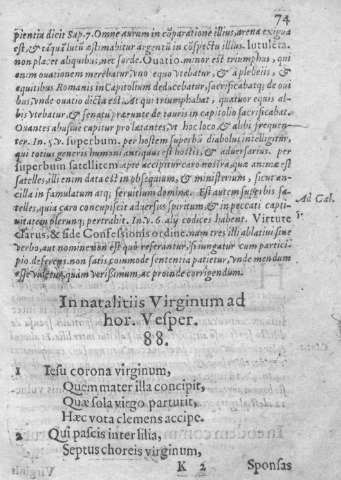 74
piẽtia dicit Sap. 7. Omne aurum in cõparatione illius, arena exigua
est, & tãquã lutũ æstimabitur argentũ in cõspectu illius. Iutuleta.
non pla. et aliquibus, nec surde. Ouatio. minor est triumphus, qui
enim ouationem merebatur, vno equo vtebatur, & a plebeiis, &
aquitibus Romanis in Capitolium deducebatur, sacrificabatq; de oui
bus, vnde ouatio dicta est. At qui triumphabat, quatuor equis al-
bis vtebatur, & senatu præeunte de tauris in capitolio sacrificabat.
Ouantes abusiue capitur pro lætantes, vt hoc loco, & alibi frequen-
ter. In. 5. v. superbum. per hostem superbũ diabolus intelligitur,
qui totius generis humani antiquus est hostis, & aduersarius. per
superbum satellitem apte accipitur caro nostra, quæ animæ est
satelles, illi enim data est in obsequium, & ministerium, sicut an-
cilla in famulatum atq; seruitium dominæ. Est autem superbus sa-
telles, quia caro concupiscit aduersus spiritum, & in peccati capti-
uitatem plerunq; pertrahit. In. v. 6. alij codices habent. Virtute
clarus, & fide Confessionis ordine. nam tres illi ablatiui siue
verbo, aut nomine non est quò referantur, si iungatur cum partici-
pio deferens. non satis commode sententia patietur, vnde mendum
esse videtur, quam verissimum, ac proinde corrigendum.
Ad Gal.
5.
In natalitiis Virginum ad
hor. Vesper.
88.
1 Iesu corona virginum,
Quem mater illa concipit,
Quæ sola virgo parturit,
Hæc vota clemens accipe.
2 Qui pascis inter lilia,
Septus choreis virginum,
K 2 Sponsas